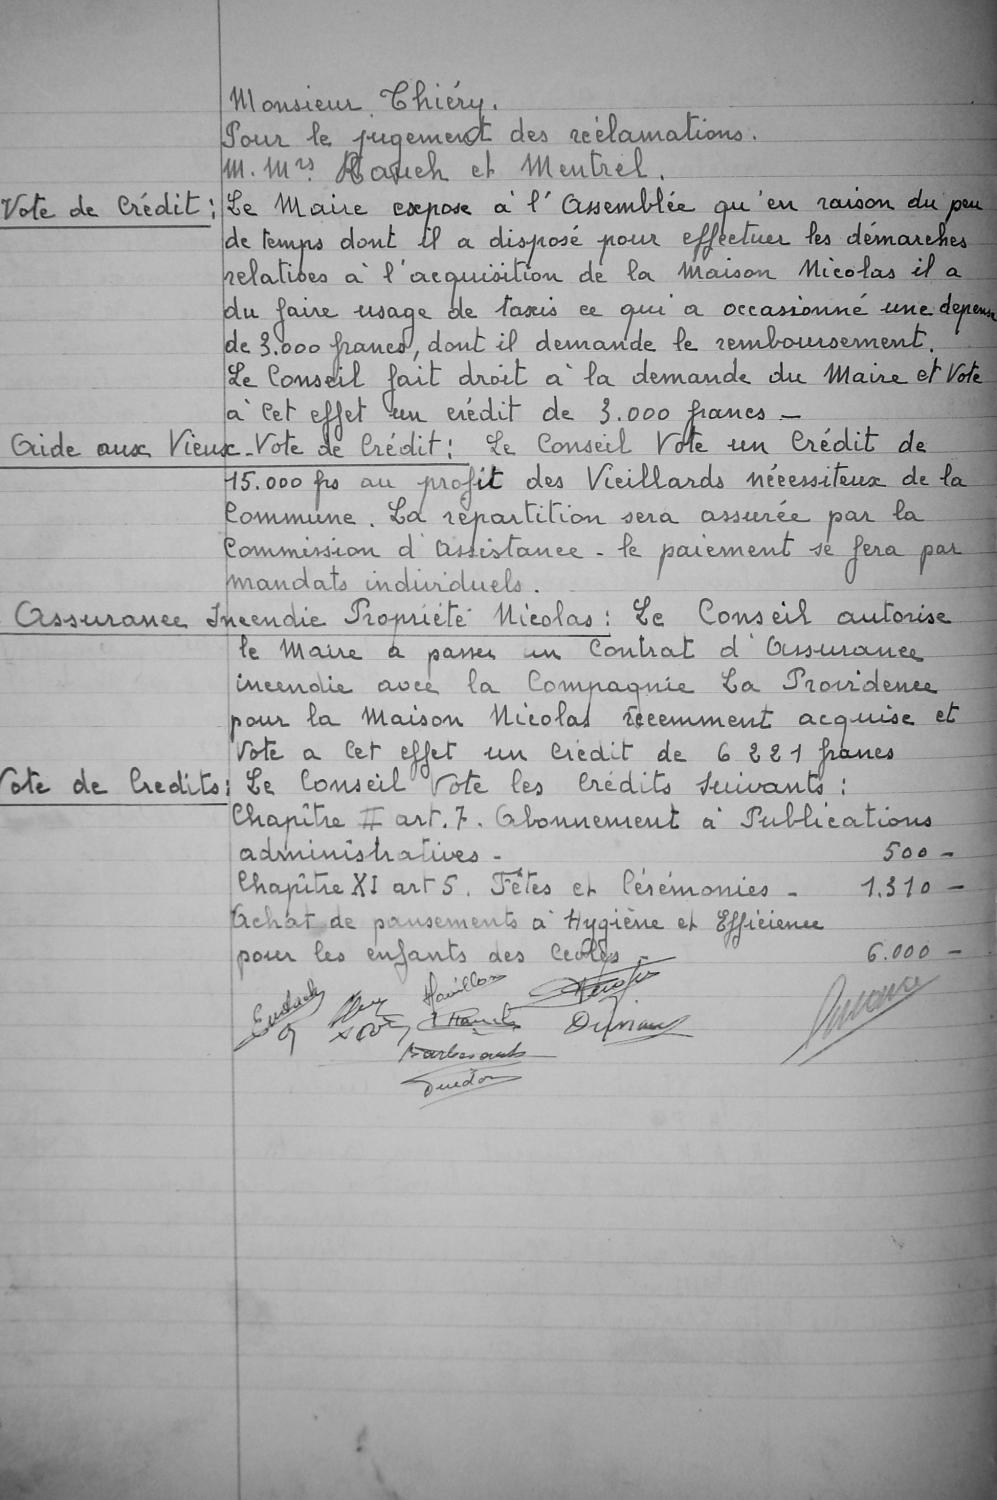 Monsieur Thiéry.
Pour le jugement des réclamations.
M. Mrs. Rauch et Mentrel.
Vote de Crédit : Le Maire expose à l'Assemblée qu'en raison du peu
de temps dont il a disposé pour effectuer les démarches
relatives à l'acquisition de la Maison Nicolas il a
du faire usage de taxis ce qui a occasionné une depense
de 3.000 francs, dont il demande le remboursement.
Le Conseil fait droit à la demande du Maire et Vote
à cet effet un crédit de 3.000 francs -
Aide aux Vieux - Vote de Crédit : Le Conseil Vote un Crédit de
15.000 frs au profit des Vieillards nécessiteux de la
Commune. La répartition sera assurée par la
Commission d'Assistance - le paiement se fera par
mandats individuels.
Assurance Incendie Propriété Nicolas : Le Conseil autorise
le Maire à passer un Contrat d'Assurance
incendie avec la Compagnie La Providence
pour la Maison Nicolas récemment acquise et
Vote a cet effet un Crédit de 6 221 francs
Vote de Credits : Le Conseil Vote les Crédits suivants :
Chapître II art. 7. Abonnement à Publications
administratives - 500 -
Chapître XI art 5. Fêtes et Cérémonies - 1.310 -
Achat de pansements à Hygiène et Efficience
pour les enfants des Ecoles - 6.000 -